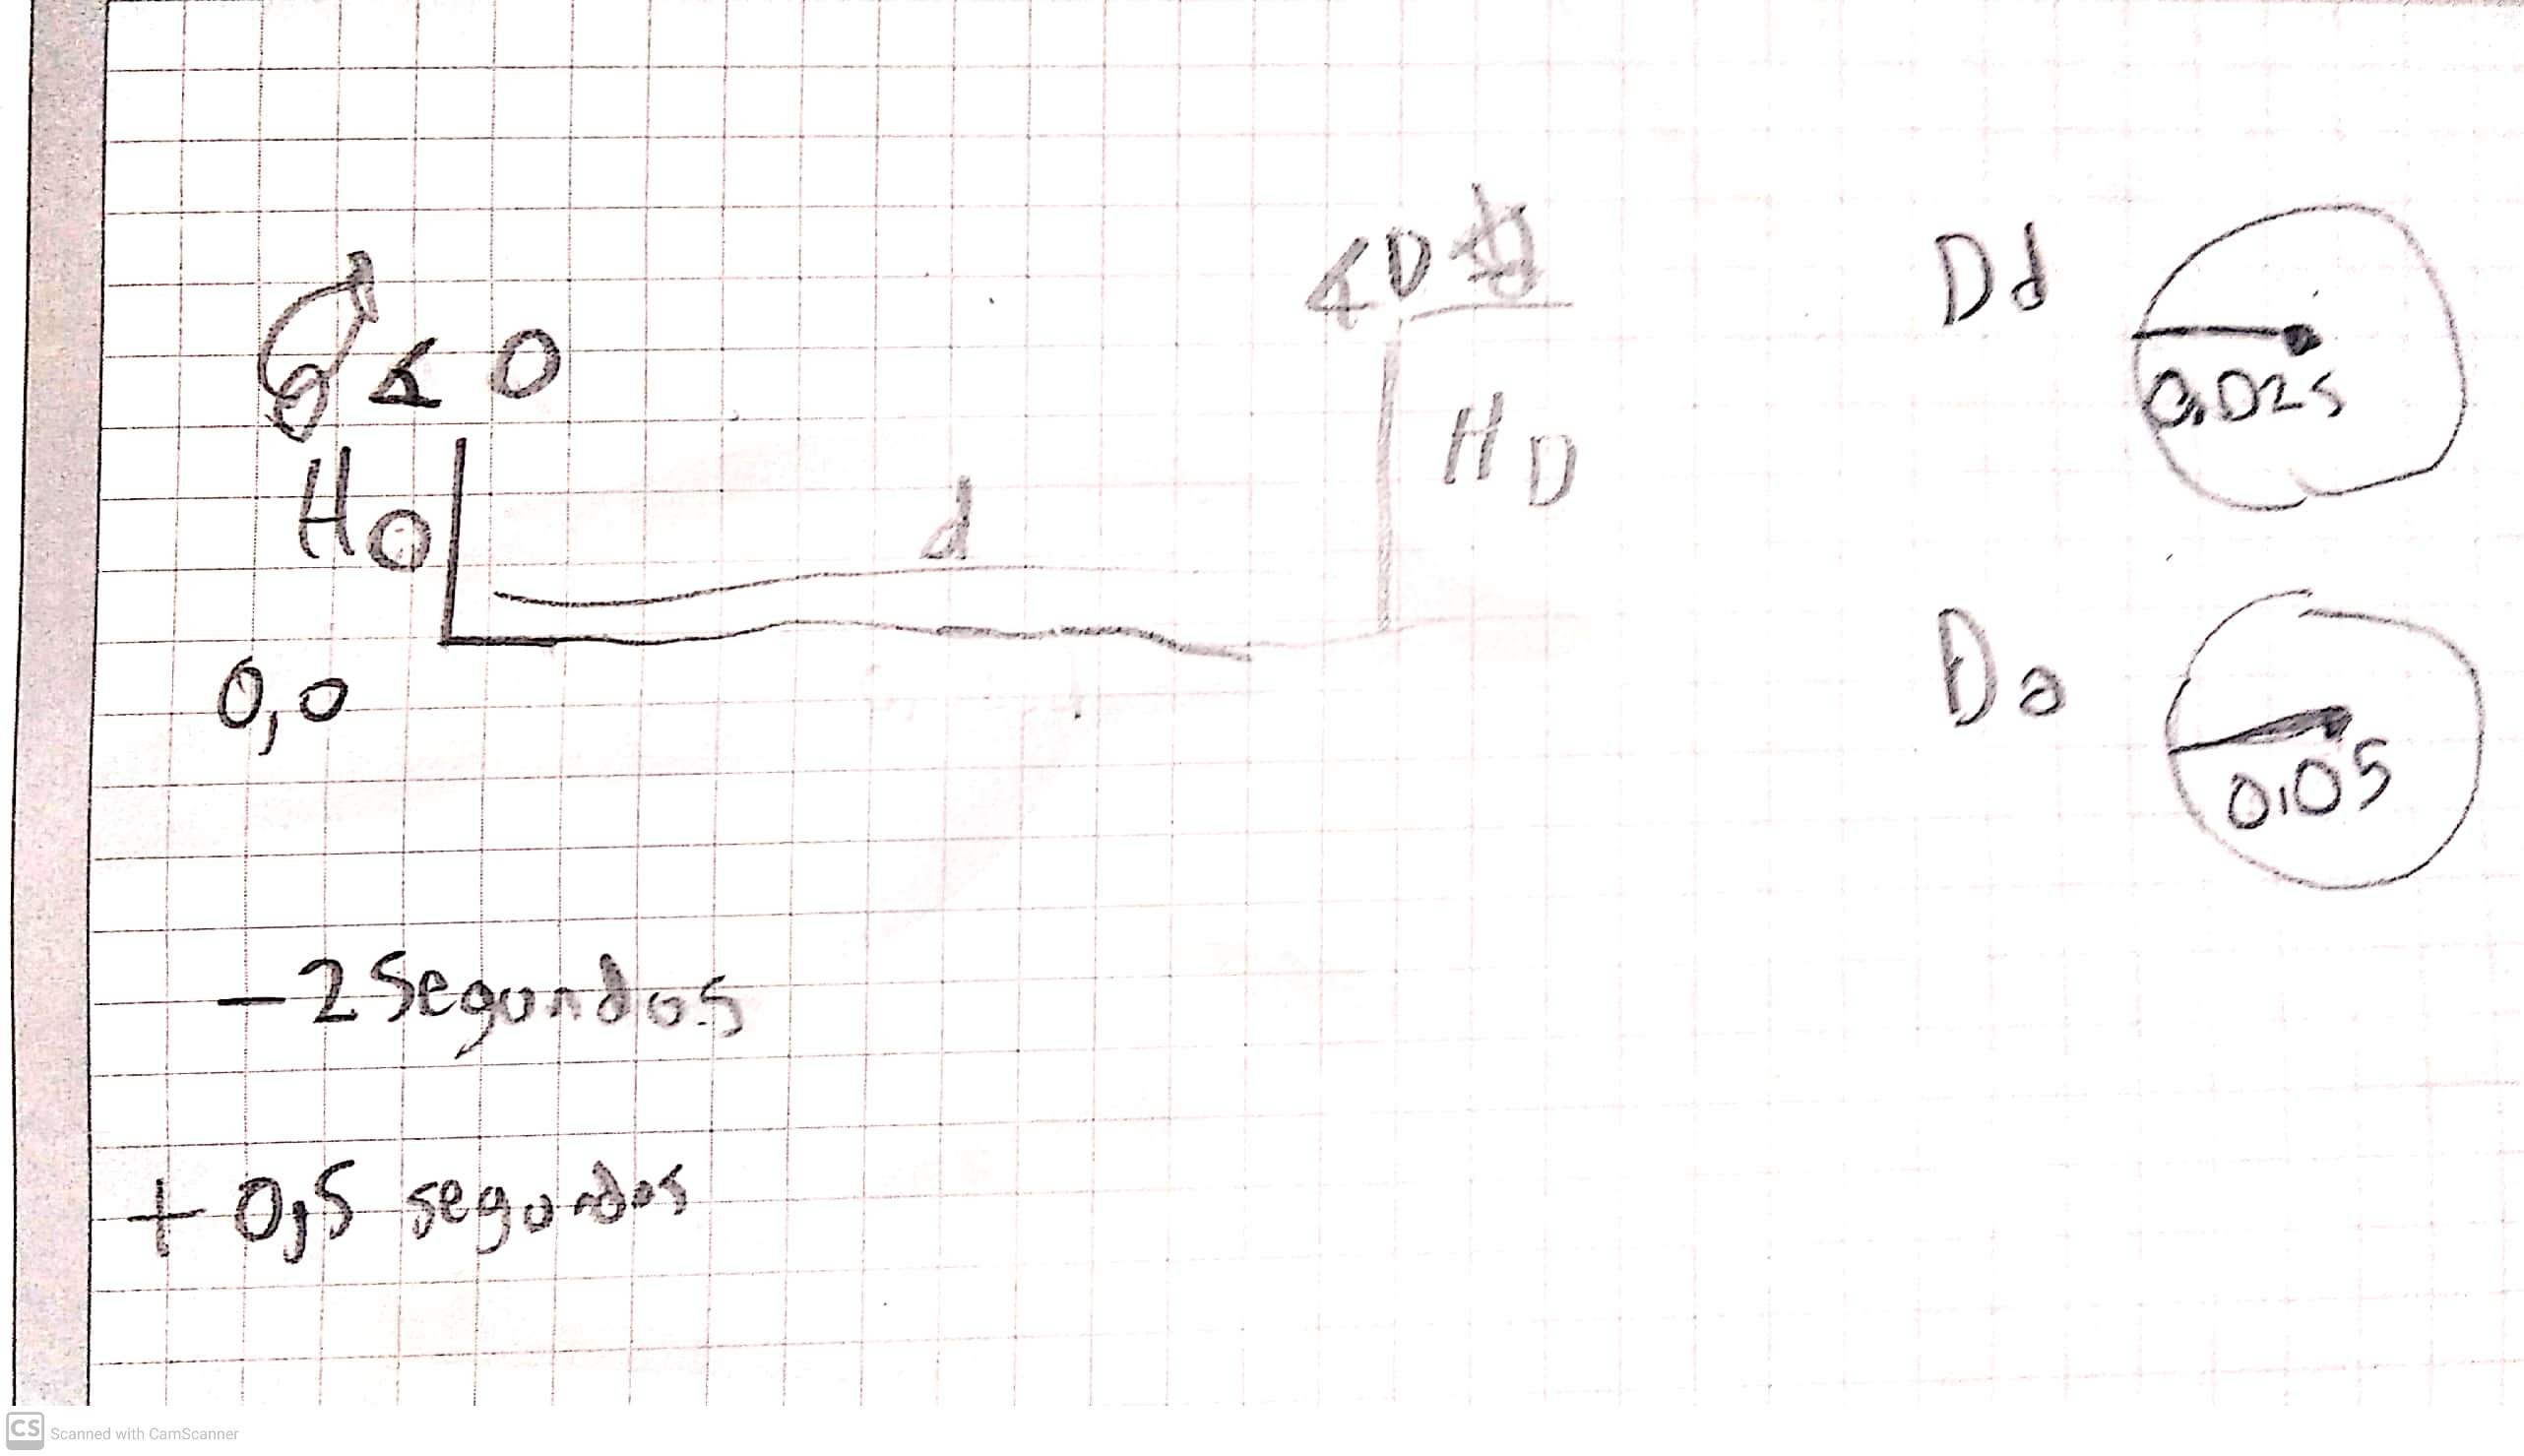 ∡D
∡O
Dd
0,025
HO
HD
d
0,0
Da
0,05
-2 Segundos
+0,5 segundos
CS Scanned with CamScanner